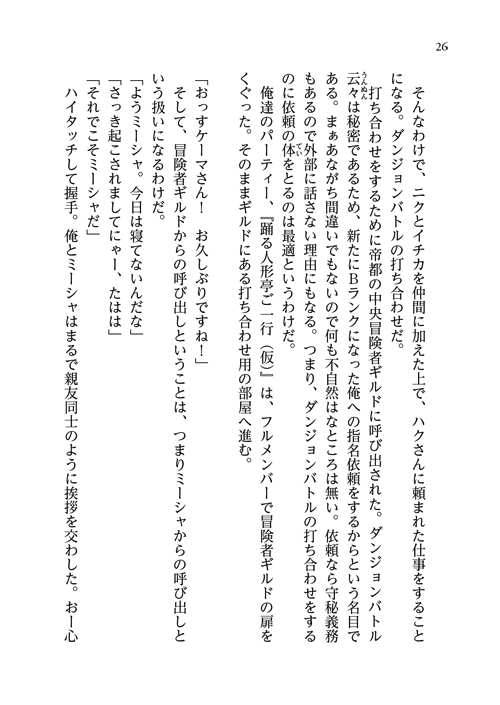 26
そんなわけで、ニクとイチカを仲間に加えた上で、ハクさんに頼まれた仕事をすること
になる。ダンジョンバトルの打ち合わせだ。
打ち合わせをするために帝都の中央冒険者ギルドに呼び出された。ダンジョンバトル
云々は秘密であるため、新たにBランクになった俺への指名依頼をするからという名目で
うんぬん
ある。まぁあながち間違いでもないので何も不自然はなところは無い。依頼なら守秘義務
もあるので外部に話さない理由にもなる。つまり、ダンジョンバトルの打ち合わせをする
のに依頼の体をとるのは最適というわけだ。
てい
俺達のパーティー、『踊る人形亭ご一行（仮）』は、フルメンバーで冒険者ギルドの扉を
くぐった。そのままギルドにある打ち合わせ用の部屋へ進む。
「おっすケーマさん！　お久しぶりですね！」
そして、冒険者ギルドからの呼び出しということは、つまりミーシャからの呼び出しと
いう扱いになるわけだ。
「ようミーシャ。今日は寝てないんだな」
「さっき起こされましてにゃー、たはは」
「それでこそミーシャだ」
ハイタッチして握手。俺とミーシャはまるで親友同士のように挨拶を交わした。おー心